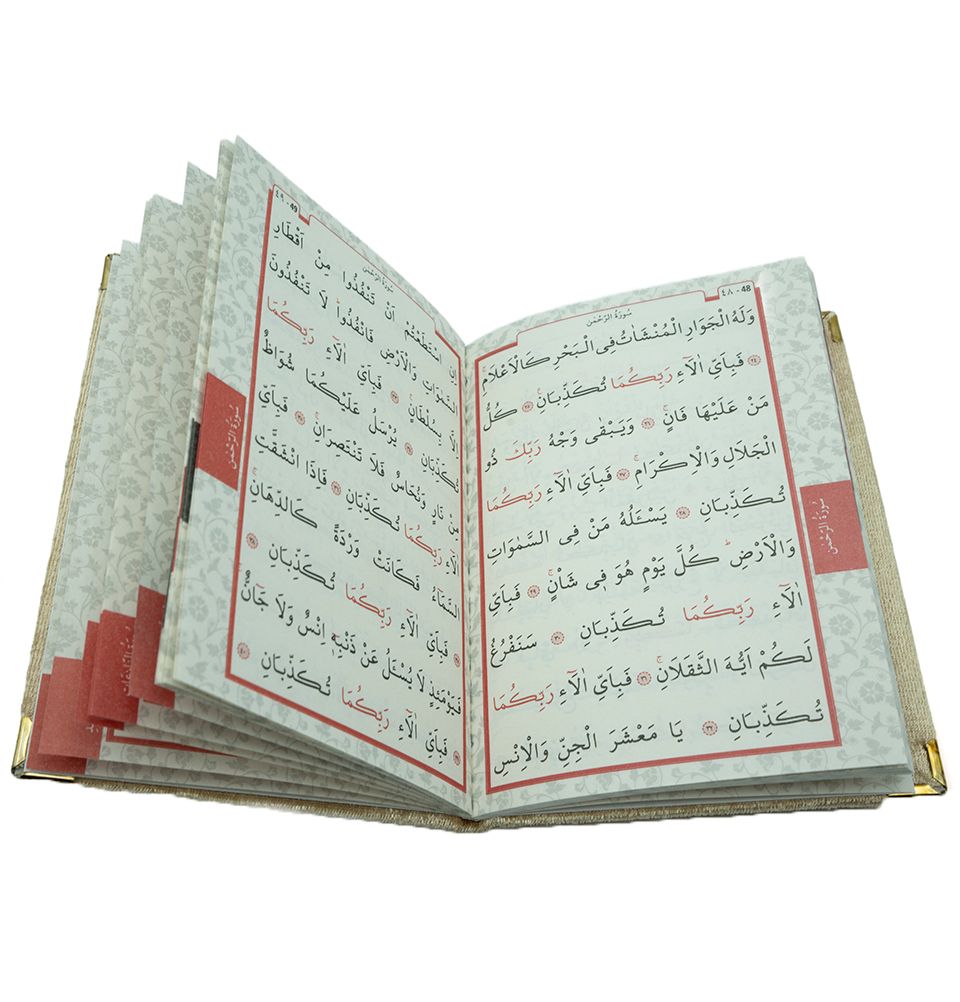 ٤٨ - 48
سُورَةُ الرَّحْمٰنِ
وَلَهُ الْجَوَارِ الْمُنْشَاٰتُ فِى الْبَحْرِ كَالْاَعْلَامِۚ
﴿٢٤﴾ فَبِاَىِّ اٰلَٓاءِ رَبِّكُمَا تُكَذِّبَانِ۟ ﴿٢٥﴾ كُلُّ
مَنْ عَلَيْهَا فَانٍۚ ﴿٢٦﴾ وَيَبْقٰى وَجْهُ رَبِّكَ ذُو
الْجَلَالِ وَالْاِكْرَامِۚ ﴿٢٧﴾ فَبِاَىِّ اٰلَٓاءِ رَبِّكُمَا
تُكَذِّبَانِ ﴿٢٨﴾ يَسْـَٔلُهُ مَنْ فِى السَّمٰوَاتِ
وَالْاَرْضِۜ كُلَّ يَوْمٍ هُوَ فٖى شَاْنٍۚ ﴿٢٩﴾ فَبِاَىِّ
اٰلَٓاءِ رَبِّكُمَا تُكَذِّبَانِ ﴿٣٠﴾ سَنَفْرُغُ
لَكُمْ اَيُّهَ الثَّقَلَانِۚ ﴿٣١﴾ فَبِاَىِّ اٰلَٓاءِ رَبِّكُمَا
تُكَذِّبَانِ ﴿٣٢﴾ يَا مَعْشَرَ الْجِنِّ وَالْاِنْسِ
سُورَةُ الرَّحْمٰنِ
٤٩ - 49
سُورَةُ الرَّحْمٰنِ
اِنِ اسْتَطَعْتُمْ اَنْ تَنْفُذُوا مِنْ اَقْطَارِ
السَّمٰوَاتِ وَالْاَرْضِ فَانْفُذُواۜ لَا تَنْفُذُونَ
اِلَّا بِسُلْطَانٍۚ ﴿٣٣﴾ فَبِاَىِّ اٰلَٓاءِ رَبِّكُمَا
تُكَذِّبَانِ ﴿٣٤﴾ يُرْسَلُ عَلَيْكُمَا شُوَاظٌ
مِنْ نَارٍ وَنُحَاسٌ فَلَا تَنْتَصِرَانِۚ ﴿٣٥﴾ فَبِاَىِّ
اٰلَٓاءِ رَبِّكُمَا تُكَذِّبَانِ ﴿٣٦﴾ فَاِذَا انْشَقَّتِ
السَّمَٓاءُ فَكَانَتْ وَرْدَةً كَالدِّهَانِۚ ﴿٣٧﴾
فَبِاَىِّ اٰلَٓاءِ رَبِّكُمَا تُكَذِّبَانِ ﴿٣٨﴾
فَيَوْمَئِذٍ لَا يُسْـَٔلُ عَنْ ذَنْبِهٖٓ اِنْسٌ وَلَا جَٓانٌّۚ
﴿٣٩﴾ فَبِاَىِّ اٰلَٓاءِ رَبِّكُمَا تُكَذِّبَانِ ﴿٤٠﴾
سُورَةُ الرَّحْمٰنِ